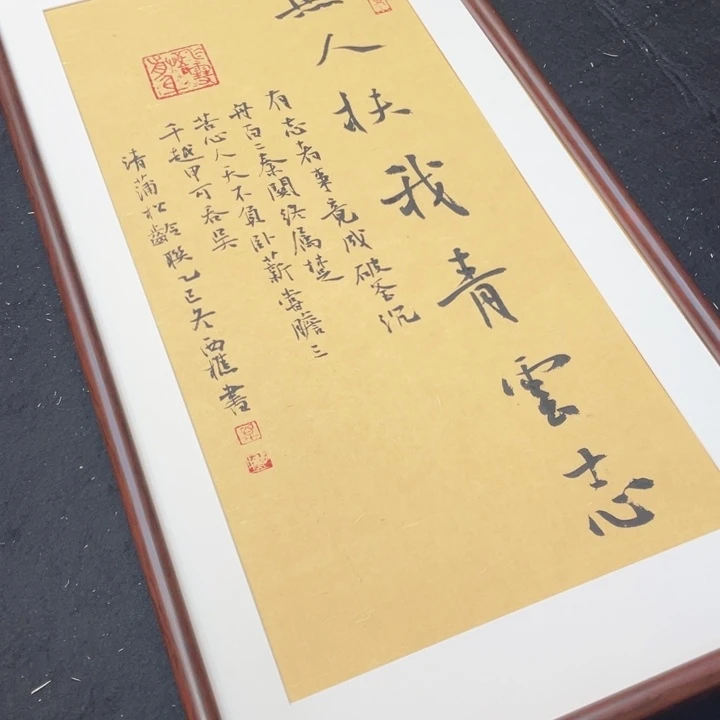 無人扶我青雲志
有志者事竟成破釜沉
舟百二秦關終属楚
苦心人天不負卧薪嘗膽三
千越甲可吞吴
清蒲松齡聯乙巳冬西樵書